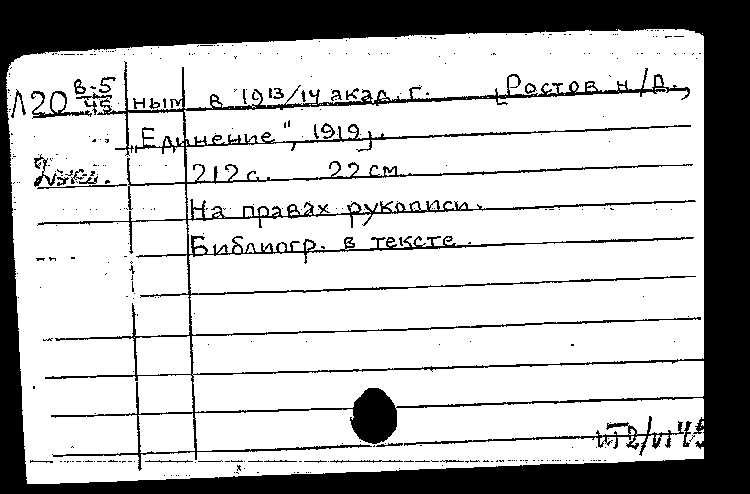 Л20 В-5/45 ным в 1913/14 акад. г. [Ростов н/Д.,
„Единение", 1919].
2 экз. 212 с. 22 см.
На правах рукописи.
Библиогр. в тексте.